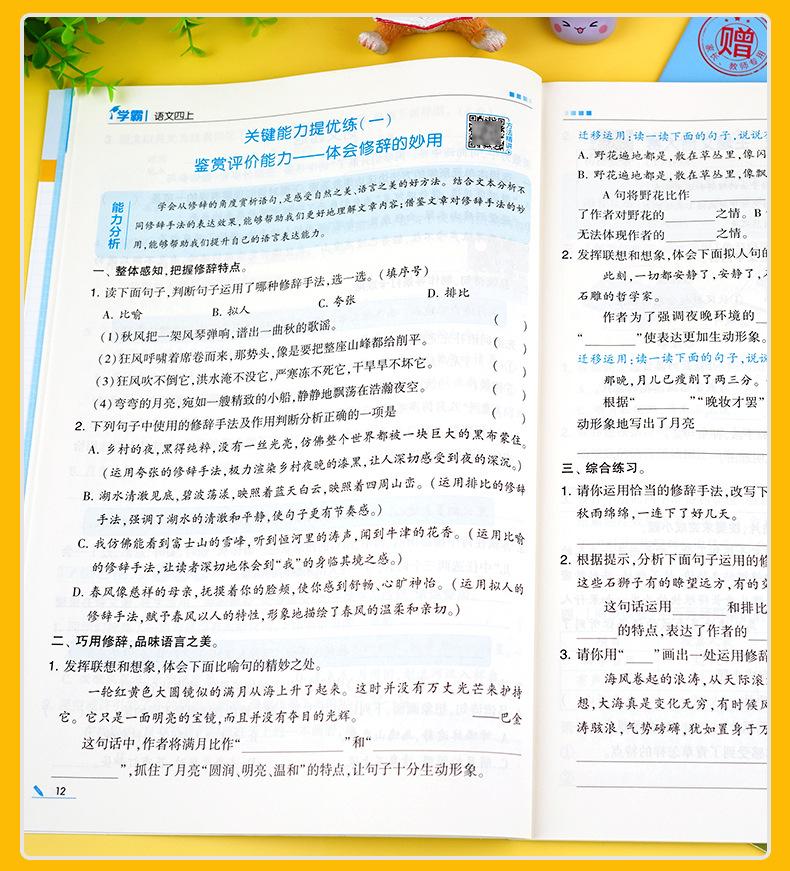 学霸 语文四上
关键能力提优练(一)
鉴赏评价能力——体会修辞的妙用
方法精讲
能力分析
学会从修辞的角度赏析语句,是感受自然之美、语言之美的好方法。结合文本分析不
同修辞手法的表达效果,能够帮助我们更好地理解文章内容;借鉴文章对修辞手法的妙
用,能够帮助我们提升自己的语言表达能力。
一、整体感知,把握修辞特点。
1. 读下面句子,判断句子运用了哪种修辞手法,选一选。(填序号)
A. 比喻 B. 拟人 C. 夸张 D. 排比
(1)秋风把一架风琴弹响,谱出一曲秋的歌谣。 ( )
(2)狂风呼啸着席卷而来,那势头,像是要把整座山峰都给削平。 ( )
(3)狂风吹不倒它,洪水淹不没它,严寒冻不死它,干旱旱不坏它。 ( )
(4)弯弯的月亮,宛如一艘精致的小船,静静地飘荡在浩瀚夜空。 ( )
2. 下列句子中使用的修辞手法及作用判断分析正确的一项是 ( )
A. 乡村的夜,黑得纯粹,没有一丝光亮,仿佛整个世界都被一块巨大的黑布蒙住。
(运用夸张的修辞手法,极力渲染乡村夜晚的漆黑,让人深切感受到夜的深沉。)
B. 湖水清澈见底,碧波荡漾,映照着蓝天白云,映照着四周山峦。(运用排比的修辞
手法,强调了湖水的清澈和平静,使句子更有节奏感。)
C. 我仿佛能看到富士山的雪峰,听到恒河里的涛声,闻到牛津的花香。(运用比喻
的修辞手法,让读者深切地体会到“我”的身临其境之感。)
D. 春风像慈祥的母亲,抚摸着你的脸颊,使你感到舒畅、心旷神怡。(运用拟人的
修辞手法,赋予春风以人的特性,形象地描绘了春风的温柔和亲切。)
二、巧用修辞,品味语言之美。
1. 发挥联想和想象,体会下面比喻句的精妙之处。
一轮红黄色大圆镜似的满月从海上升了起来。这时并没有万丈光芒来护持
它。它只是一面明亮的宝镜,而且并没有夺目的光辉。 ——巴金
这句话中,作者将满月比作“________”和“________
________”,抓住了月亮“圆润、明亮、温和”的特点,让句子十分生动形象。
12
迁移运用:读一读下面的句子,说说
A. 野花遍地都是,散在草丛里,像闪
B. 野花遍地都是,散在草丛里,像飘
A 句将野花比作________
了作者对野花的________之情。B
无法体现作者的________之情。
2. 发挥联想和想象,体会下面拟人句的
此刻,一切都安静了,安静了,
石雕的哲学家。
作者为了强调夜晚环境的
“________”使表达更加生动形象。
迁移运用:读一读下面的句子,说说
那晚,月儿已瘦削了两三分。
根据“________”“晚妆才罢”
动形象地写出了月亮________
三、综合练习。
1. 请你运用恰当的修辞手法,改写下
秋雨绵绵,一连下了好几天。
2. 根据提示,分析下面句子运用的修
这些石狮子有的瞭望远方,有的
这句话运用________和排比
________的特点,表达了作者的
3. 请你用“____”画出一处运用修辞
海风卷起的浪涛,从天际滚
想,大海真是变化无穷,有时候风
涛骇浪,气势磅礴,犹如置身于万
赠
家长、教师专用